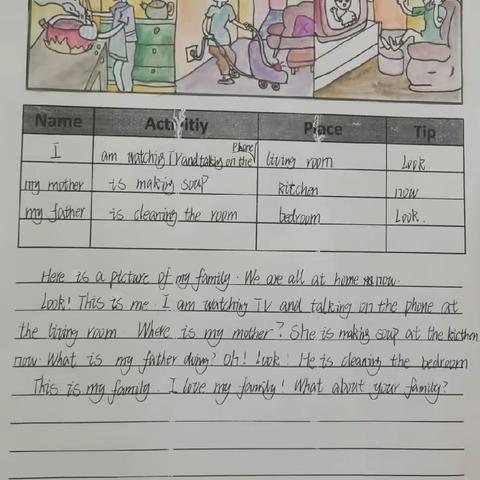 Name Activitiy Place Tip
I am watching TV and talking on the phone living room Look.
my mother is making soup kitchen now
my father is cleaning the room bedroom Look.
Here is a picture of my family. We are all at home now.
Look! This is me. I am watching TV and talking on the phone at
the living room. Where is my mother? She is making soup at the kicthen
now. What is my father doing? Oh! Look! He is cleaning the bedroom.
This is my family. I love my family! What about your family?